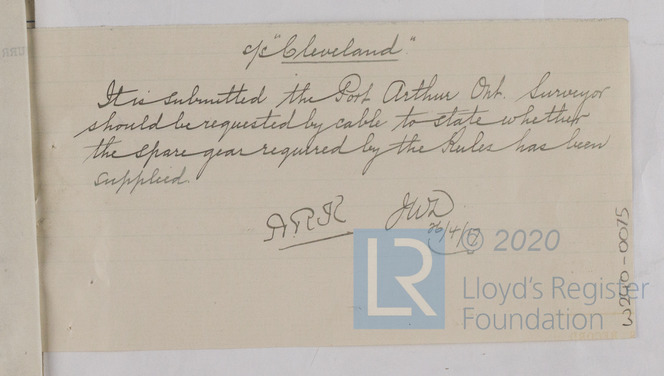 c/s "Cleveland".
It is submitted the Port Arthur Ont. Surveyor
should be requested by cable to state whether
the spare gear required by the Rules has been
supplied.
ARK JWD
26/4/17
© 2020
LR
Lloyd's Register
Foundation
3290-0075